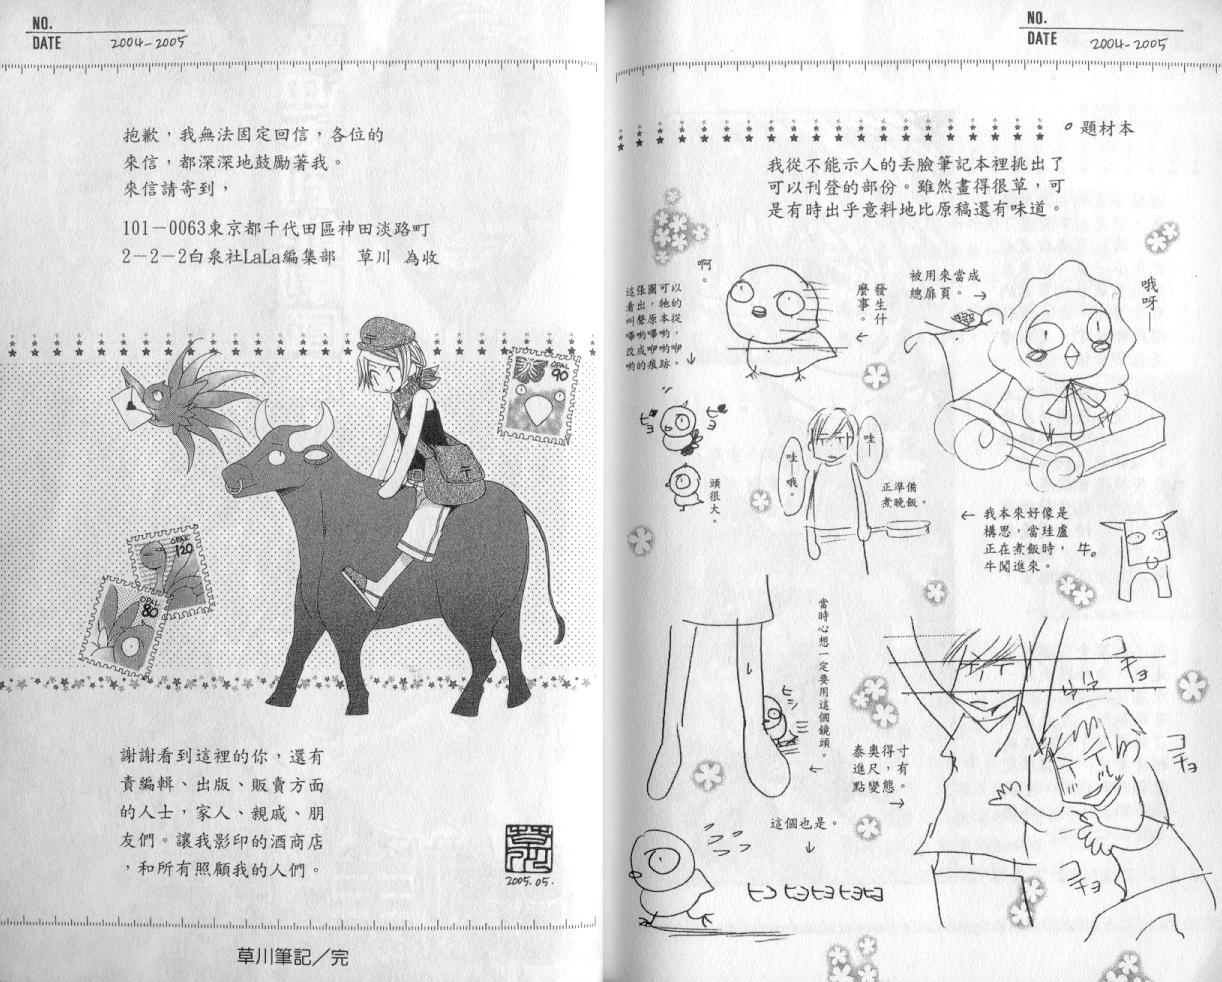 NO.
DATE 2004-2005
題材本
我從不能示人的丟臉筆記本裡挑出了
可以刊登的部份。雖然畫得很草，可
是有時出乎意料地比原稿還有味道。
哦呀—
被用來當成
總扉頁。→
發生什
麼事。
←
啊。
這張圖可以
看出，牠的
叫聲原本從
嗶喲嗶喲，
改成咿喲咿
喲的痕跡。
↓
ヒヨ
ヒヨ
頭很大。
哇—
哇—哦。
正準備
煮晚飯。
← 我本來好像是
構思，當珪盧
正在煮飯時，
牛闖進來。
牛。
當時心想一定要用這個鏡頭。
←
ヒシ
泰奧得寸
進尺，有
點變態。
→
コチョ
コチョ
コチョ
這個也是。
↓
ヒコ ヒヨヒヨヒヨヒヨ
NO.
DATE 2004-2005
抱歉，我無法固定回信，各位的
來信，都深深地鼓勵著我。
來信請寄到，
101－0063東京都千代田區神田淡路町
2－2－2白泉社LaLa編集部　草川　為收
OPAL
90
OPAL
120
OPAL
80
謝謝看到這裡的你，還有
責編輯、出版、販賣方面
的人士，家人、親戚、朋
友們。讓我影印的酒商店
，和所有照顧我的人們。
草川
2005.05.
草川筆記／完